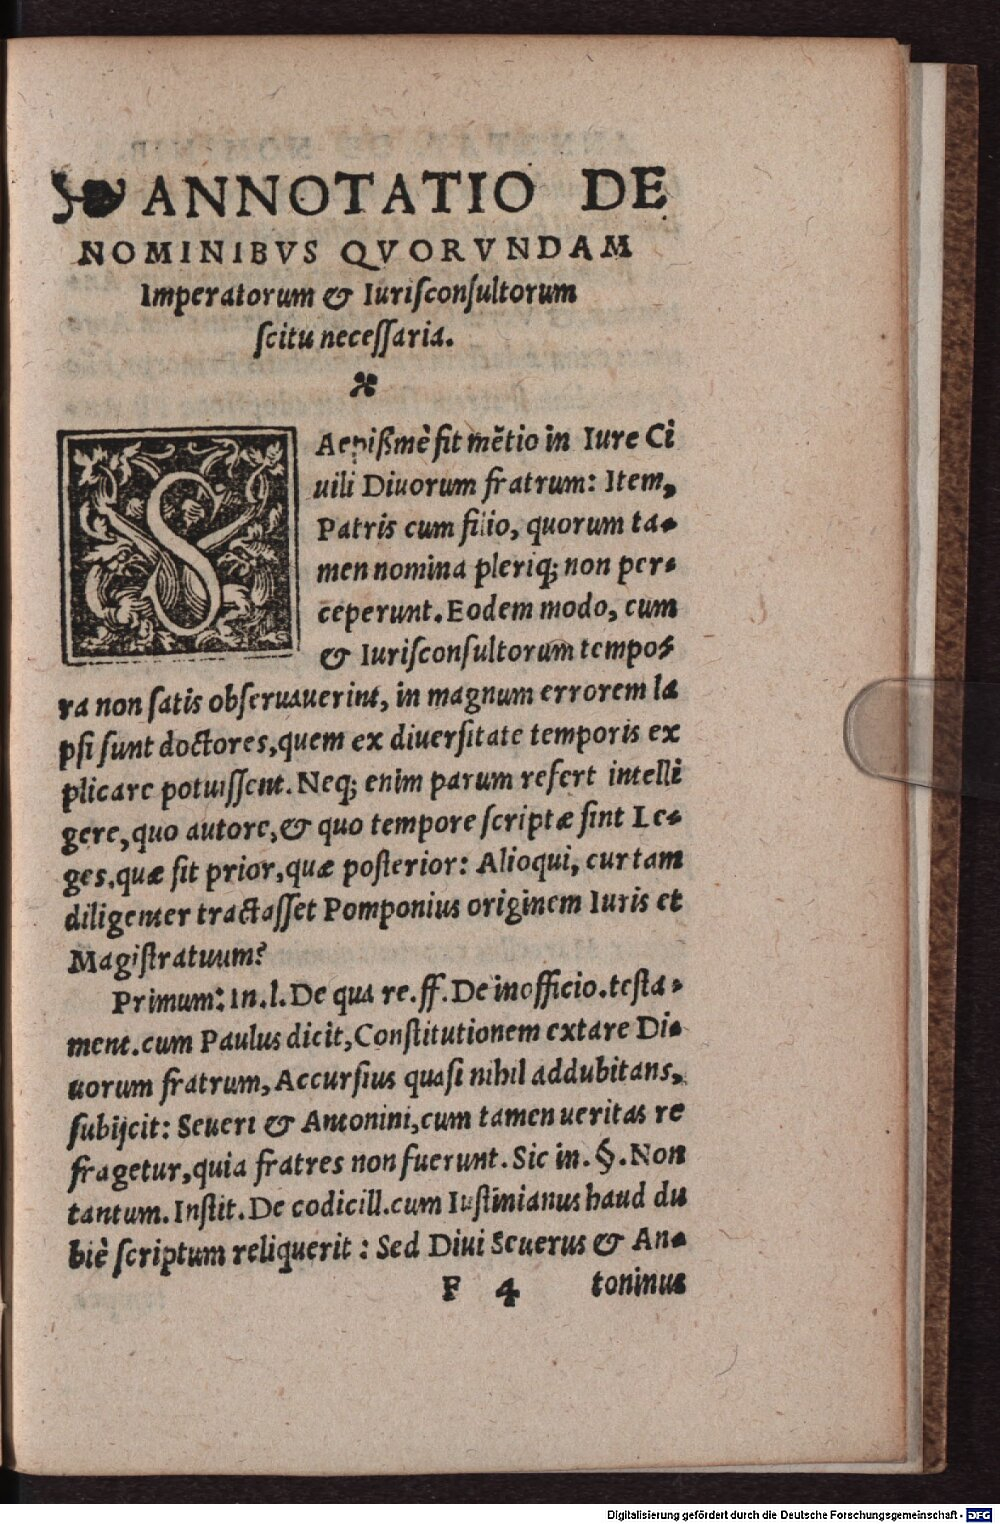 ❧ ANNOTATIO DE
NOMINIBVS QVORVNDAM
Imperatorum & Iuriſconſultorum
ſcitu neceſſaria.
SAepißmè fit mẽtio in Iure Ci
uili Diuorum fratrum: Item,
Patris cum filio, quorum ta-
men nomina pleriq; non per-
ceperunt. Eodem modo, cum
& Iuriſconſultorum tempo-
ra non ſatis obſeruauerint, in magnum errorem la
pſi ſunt doctores, quem ex diuerſitate temporis ex
plicare potuiſſent. Neq; enim parum refert intelli
gere, quo autore, & quo tempore ſcriptæ ſint Le-
ges, quæ ſit prior, quæ poſterior: Alioqui, cur tam
diligenter tractaſſet Pomponius originem Iuris et
Magiſtratuum?
Primum: In.l. De qua re. ff. De inofficio. teſta-
ment. cum Paulus dicit, Conſtitutionem extare Di-
uorum fratrum, Accurſius quaſi nihil addubitans,
ſubijcit: Seueri & Antonini, cum tamen ueritas re
fragetur, quia fratres non fuerunt. Sic in. §. Non
tantum. Inſtit. De codicill. cum Iuſtinianus haud du
biè ſcriptum reliquerit: Sed Diui Seuerus & An-
F 4 toninus
Digitalisierung gefördert durch die Deutsche Forschungsgemeinschaft - DFG